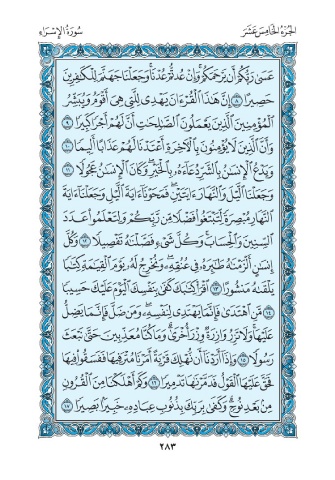 الجزء الخامس عشر
سورة الإسراء
عَسَىٰ رَبُّكُمْ أَن يَرْحَمَكُمْ وَإِنْ عُدتُّمْ عُدْنَا وَجَعَلْنَا جَهَنَّمَ لِلْكَٰفِرِينَ
حَصِيرًا ٨ إِنَّ هَٰذَا ٱلْقُرْءَانَ يَهْدِى لِلَّتِى هِىَ أَقْوَمُ وَيُبَشِّرُ
ٱلْمُؤْمِنِينَ ٱلَّذِينَ يَعْمَلُونَ ٱلصَّٰلِحَٰتِ أَنَّ لَهُمْ أَجْرًا كَبِيرًا ٩
وَأَنَّ ٱلَّذِينَ لَا يُؤْمِنُونَ بِٱلْءَاخِرَةِ أَعْتَدْنَا لَهُمْ عَذَابًا أَلِيمًا ١٠
وَيَدْعُ ٱلْإِنسَٰنُ بِٱلشَّرِّ دُعَآءَهُۥ بِٱلْخَيْرِ وَكَانَ ٱلْإِنسَٰنُ عَجُولًا ١١
وَجَعَلْنَا ٱلَّيْلَ وَٱلنَّهَارَ ءَايَتَيْنِ فَمَحَوْنَآ ءَايَةَ ٱلَّيْلِ وَجَعَلْنَآ ءَايَةَ
ٱلنَّهَارِ مُبْصِرَةً لِّتَبْتَغُوا۟ فَضْلًا مِّن رَّبِّكُمْ وَلِتَعْلَمُوا۟ عَدَدَ
ٱلسِّنِينَ وَٱلْحِسَابَ وَكُلَّ شَىْءٍ فَصَّلْنَٰهُ تَفْصِيلًا ١٢ وَكُلَّ
إِنسَٰنٍ أَلْزَمْنَٰهُ طَٰٓئِرَهُۥ فِى عُنُقِهِۦ وَنُخْرِجُ لَهُۥ يَوْمَ ٱلْقِيَٰمَةِ كِتَٰبًا
يَلْقَىٰهُ مَنشُورًا ١٣ ٱقْرَأْ كِتَٰبَكَ كَفَىٰ بِنَفْسِكَ ٱلْيَوْمَ عَلَيْكَ حَسِيبًا
١٤ مَّنِ ٱهْتَدَىٰ فَإِنَّمَا يَهْتَدِى لِنَفْسِهِۦ وَمَن ضَلَّ فَإِنَّمَا يَضِلُّ
عَلَيْهَا وَلَا تَزِرُ وَازِرَةٌ وِزْرَ أُخْرَىٰ وَمَا كُنَّا مُعَذِّبِينَ حَتَّىٰ نَبْعَثَ
رَسُولًا ١٥ وَإِذَآ أَرَدْنَآ أَن نُّهْلِكَ قَرْيَةً أَمَرْنَا مُتْرَفِيهَا فَفَسَقُوا۟ فِيهَا
فَحَقَّ عَلَيْهَا ٱلْقَوْلُ فَدَمَّرْنَٰهَا تَدْمِيرًا ١٦ وَكَمْ أَهْلَكْنَا مِنَ ٱلْقُرُونِ
مِنۢ بَعْدِ نُوحٍ وَكَفَىٰ بِرَبِّكَ بِذُنُوبِ عِبَادِهِۦ خَبِيرًۢا بَصِيرًا ١٧
٢٨٣